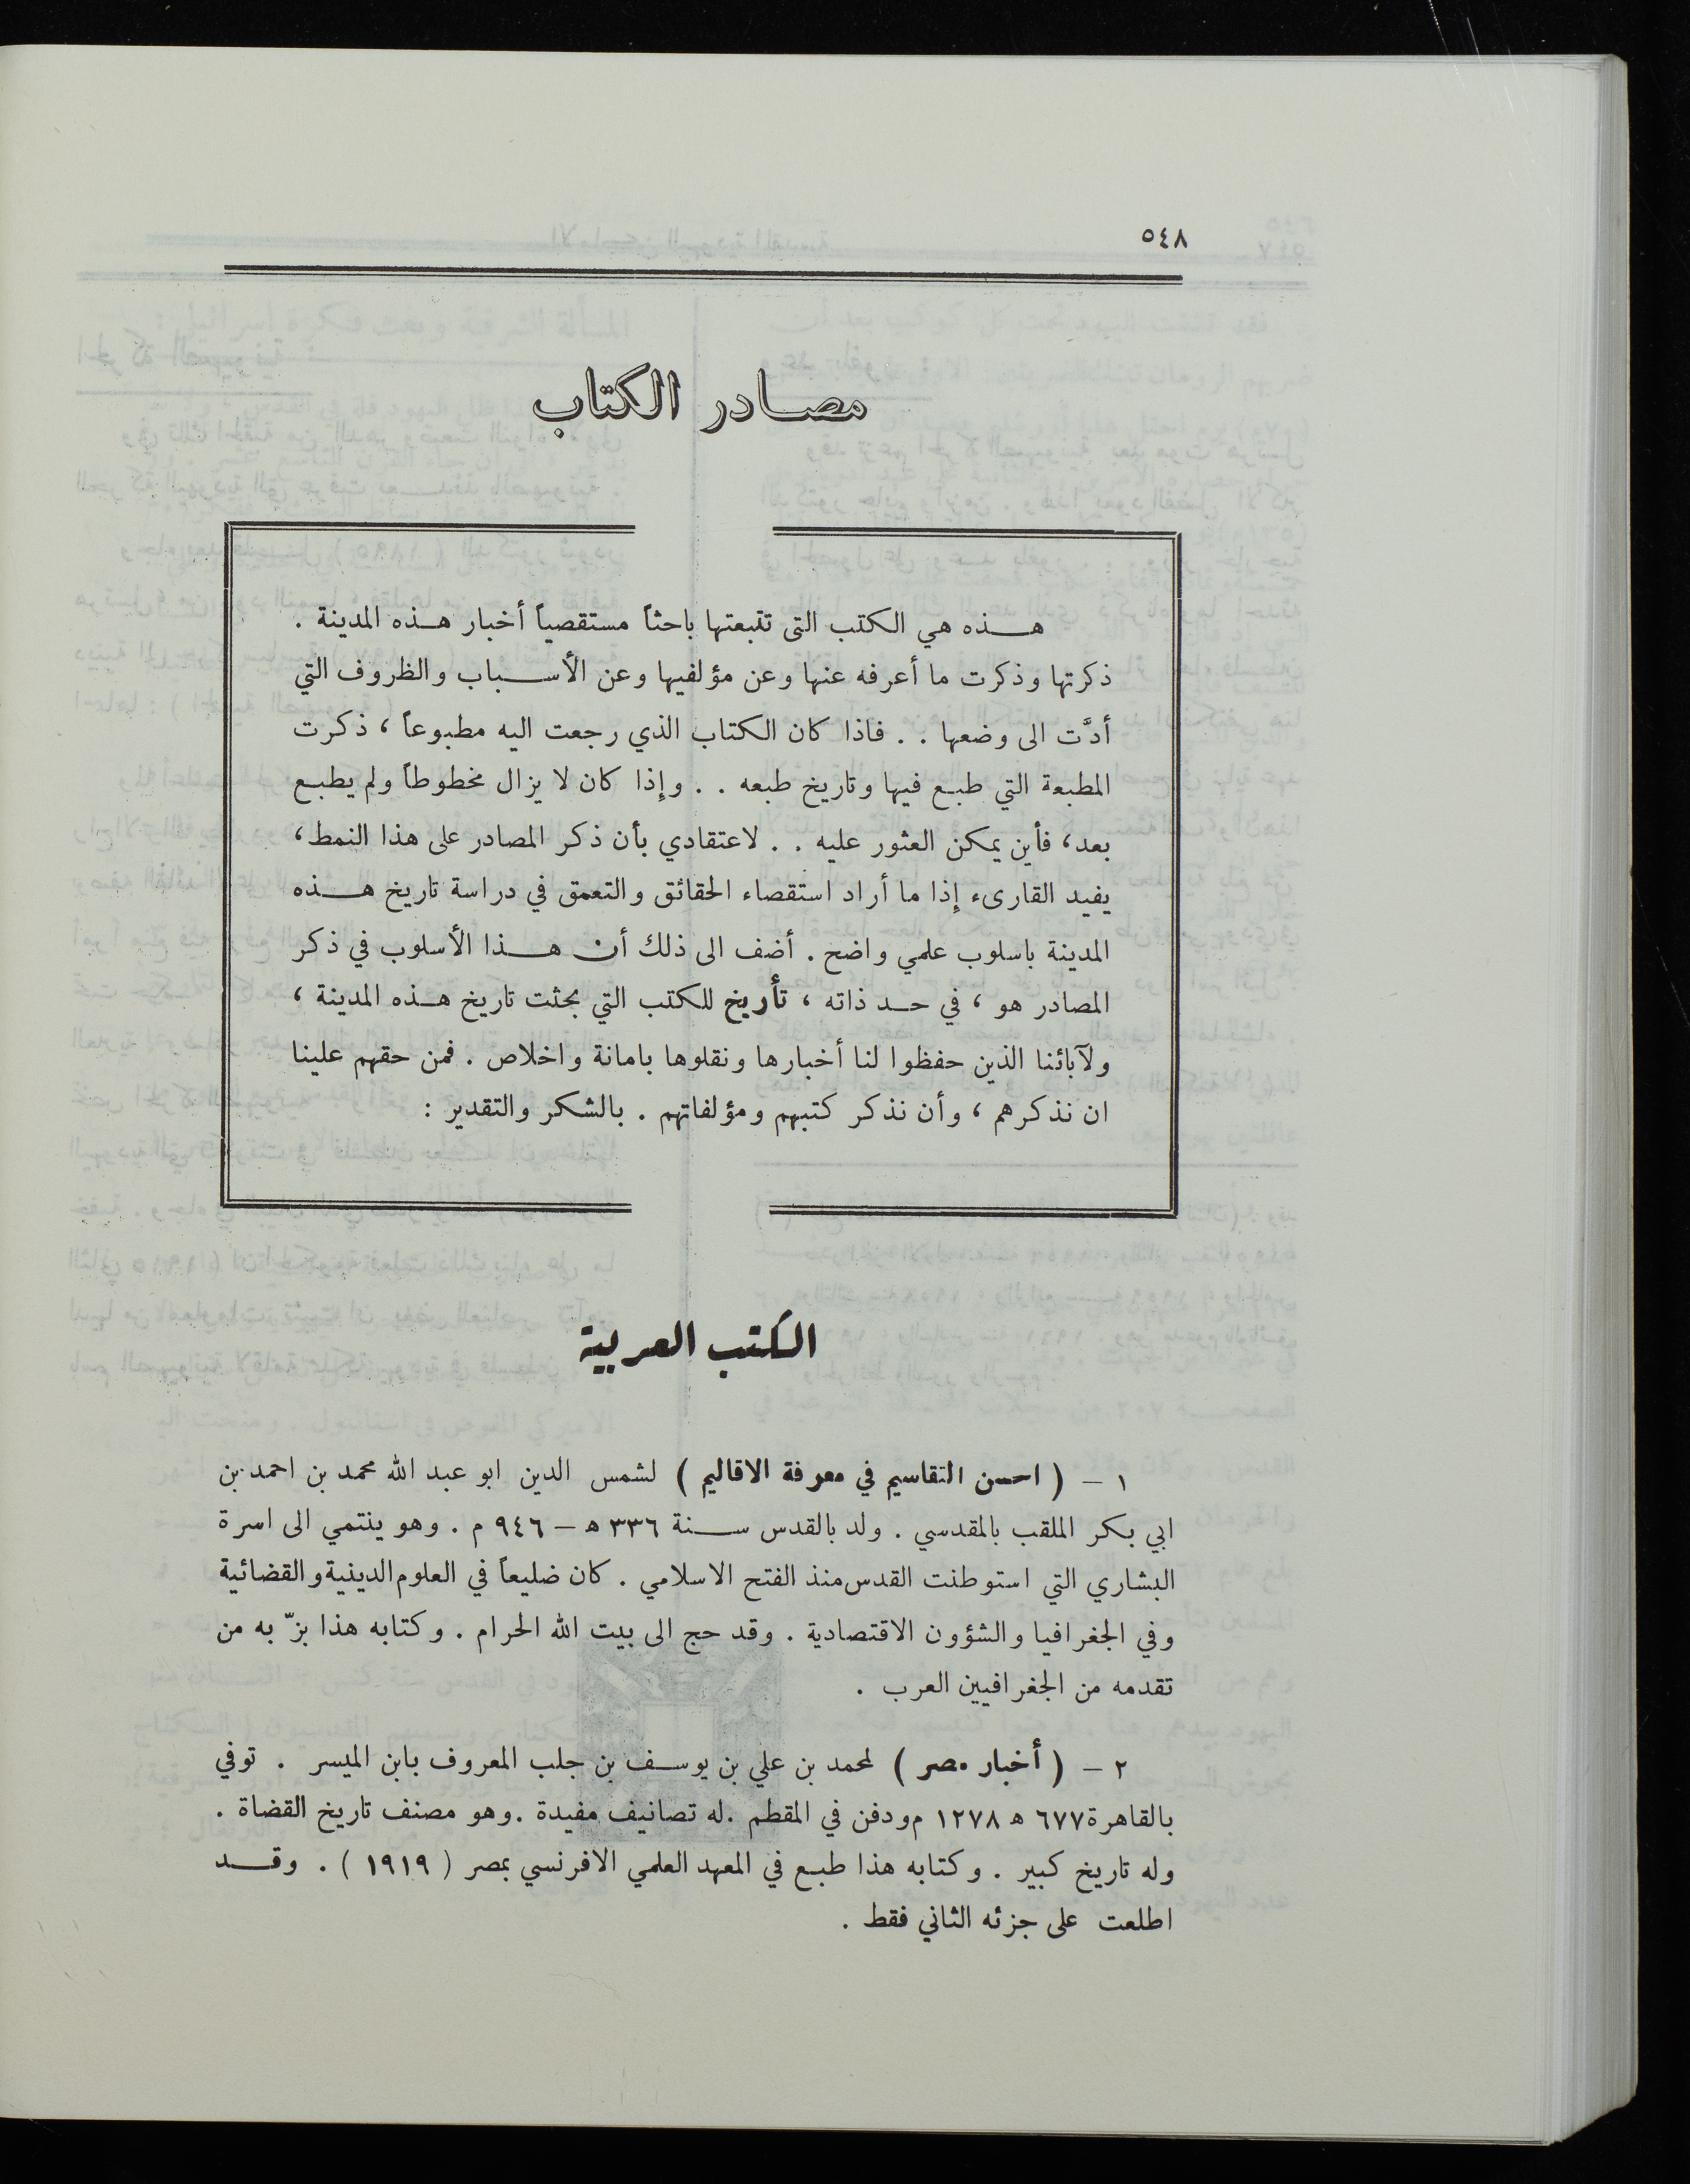 ٥٤٨
مصادر الكتاب
هذه هي الكتب التى تتبعتها باحثاً مستقصياً أخبار هذه المدينة .
ذكرتها وذكرت ما أعرفه عنها وعن مؤلفيها وعن الأسباب والظروف التي
أدَّت الى وضعها . . فاذا كان الكتاب الذي رجعت اليه مطبوعاً ، ذكرت
المطبعة التي طبع فيها وتاريخ طبعه . . وإذا كان لا يزال مخطوطاً ولم يطبع
بعد، فأين يمكن العثور عليه . . لاعتقادي بأن ذكر المصادر على هذا النمط ،
يفيد القارىء إذا ما أراد استقصاء الحقائق والتعمق في دراسة تاريخ هذه
المدينة باسلوب علمي واضح . أضف الى ذلك أن هذا الأسلوب في ذكر
المصادر هو ، في حد ذاته ، تأريخ للكتب التي بحثت تاريخ هذه المدينة ،
ولآبائنا الذين حفظوا لنا أخبارها ونقلوها بامانة واخلاص . فمن حقهم علينا
ان نذكرهم ، وأن نذكر كتبهم ومؤلفاتهم . بالشكر والتقدير :
الكتب العربية
١ – ( احسن التقاسيم في معرفة الاقاليم ) لشمس الدين ابو عبد الله محمد بن احمد بن
ابي بكر الملقب بالمقدسي . ولد بالقدس سنة ٣٣٦ ه – ٩٤٦ م . وهو ينتمي الى اسرة
البشاري التي استوطنت القدس منذ الفتح الاسلامي . كان ضليعاً في العلوم الدينية والقضائية
وفي الجغرافيا والشؤون الاقتصادية . وقد حج الى بيت الله الحرام . وكتابه هذا بزّ به من
تقدمه من الجغرافيين العرب .
٢ – ( أخبار مصر ) لمحمد بن علي بن يوسف بن جلب المعروف بابن الميسر . توفي
بالقاهرة ٦٧٧ ه ١٢٧٨ م ودفن في المقطم . له تصانيف مفيدة . وهو مصنف تاريخ القضاة .
وله تاريخ كبير . وكتابه هذا طبع في المعهد العلمي الافرنسي بمصر ( ١٩١٩ ) . وقد
اطلعت على جزئه الثاني فقط .